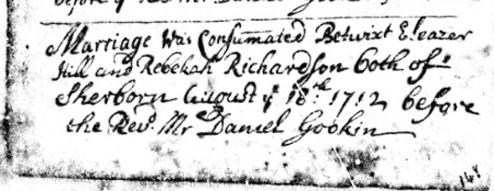 before y Rev Mr Daniel Gookin
Marriage Was Consumated Betwixt Eleazer
Hill and Rebekah Richardson both of
Sherborn August ye 18th: 1712 before
the Revd. Mr Daniel Gookin
148